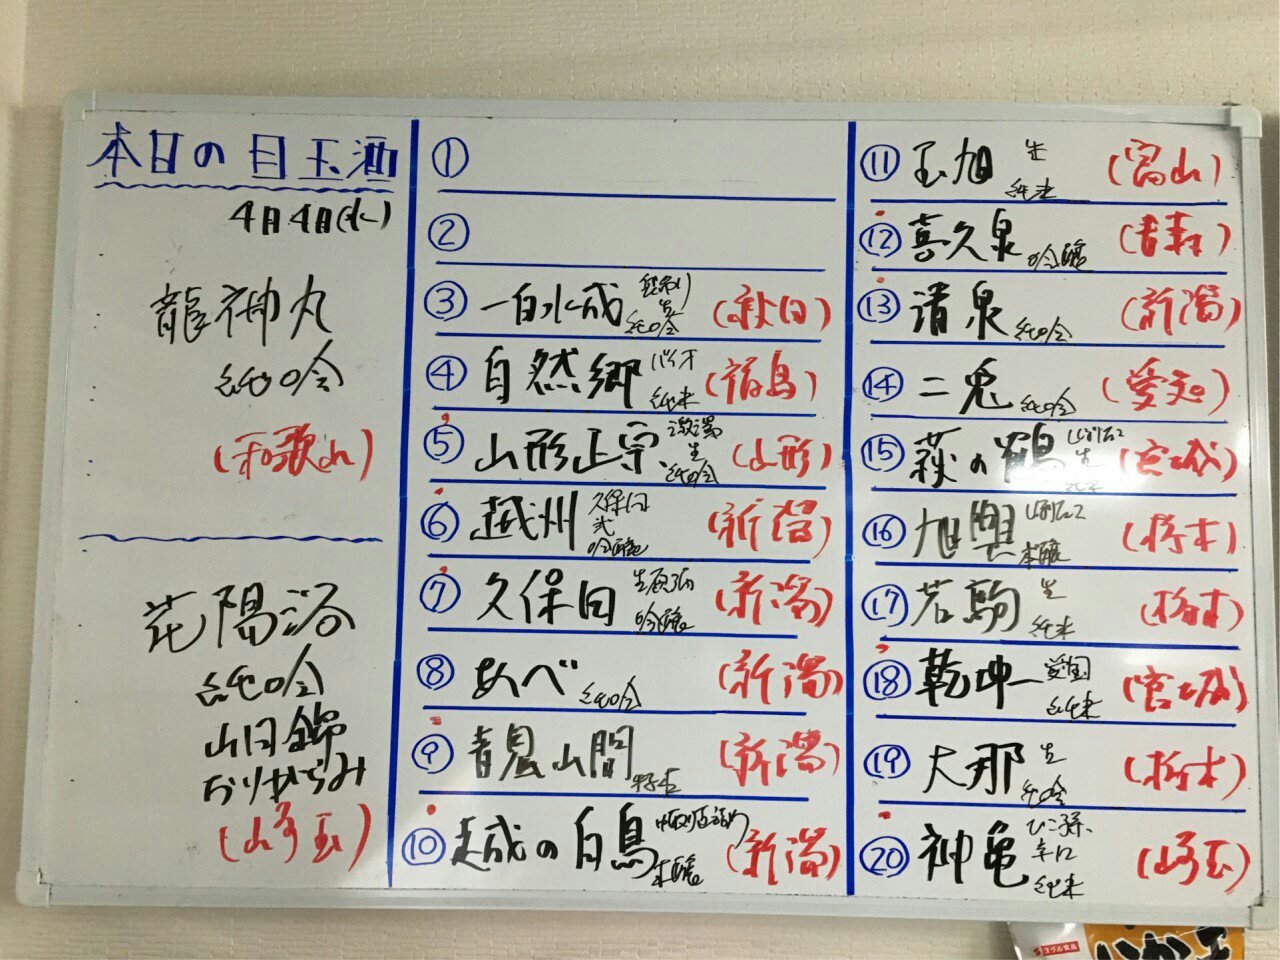 本日の目玉酒
4月4日(水)
龍神丸
純吟
(和歌山)
花陽浴
純吟
山田錦
おりがらみ
(埼玉)
①
②
③ 一白水成 生 純吟 (秋田)
④ 自然郷 バイオ 純米 (福島)
⑤ 山形正宗 生 純吟 (山形)
⑥ 越州 久保田 弐 吟醸 (新潟)
⑦ 久保田 生原酒 吟醸 (新潟)
⑧ あべ 純吟 (新潟)
⑨ 山間 特本 (新潟)
⑩ 越の白鳥 中取り原酒 本醸 (新潟)
⑪ 玉旭 生 純米 (富山)
⑫ 喜久泉 吟醸 (青森)
⑬ 清泉 純吟 (新潟)
⑭ 二兎 純吟 (愛知)
⑮ 萩の鶴 生 純米 (宮城)
⑯ 旭興 本醸 (栃木)
⑰ 若駒 生 純米 (栃木)
⑱ 乾坤一 愛国 純米 (宮城)
⑲ 大那 生 純吟 (栃木)
⑳ 神亀 ひこ孫 辛口 純米 (埼玉)